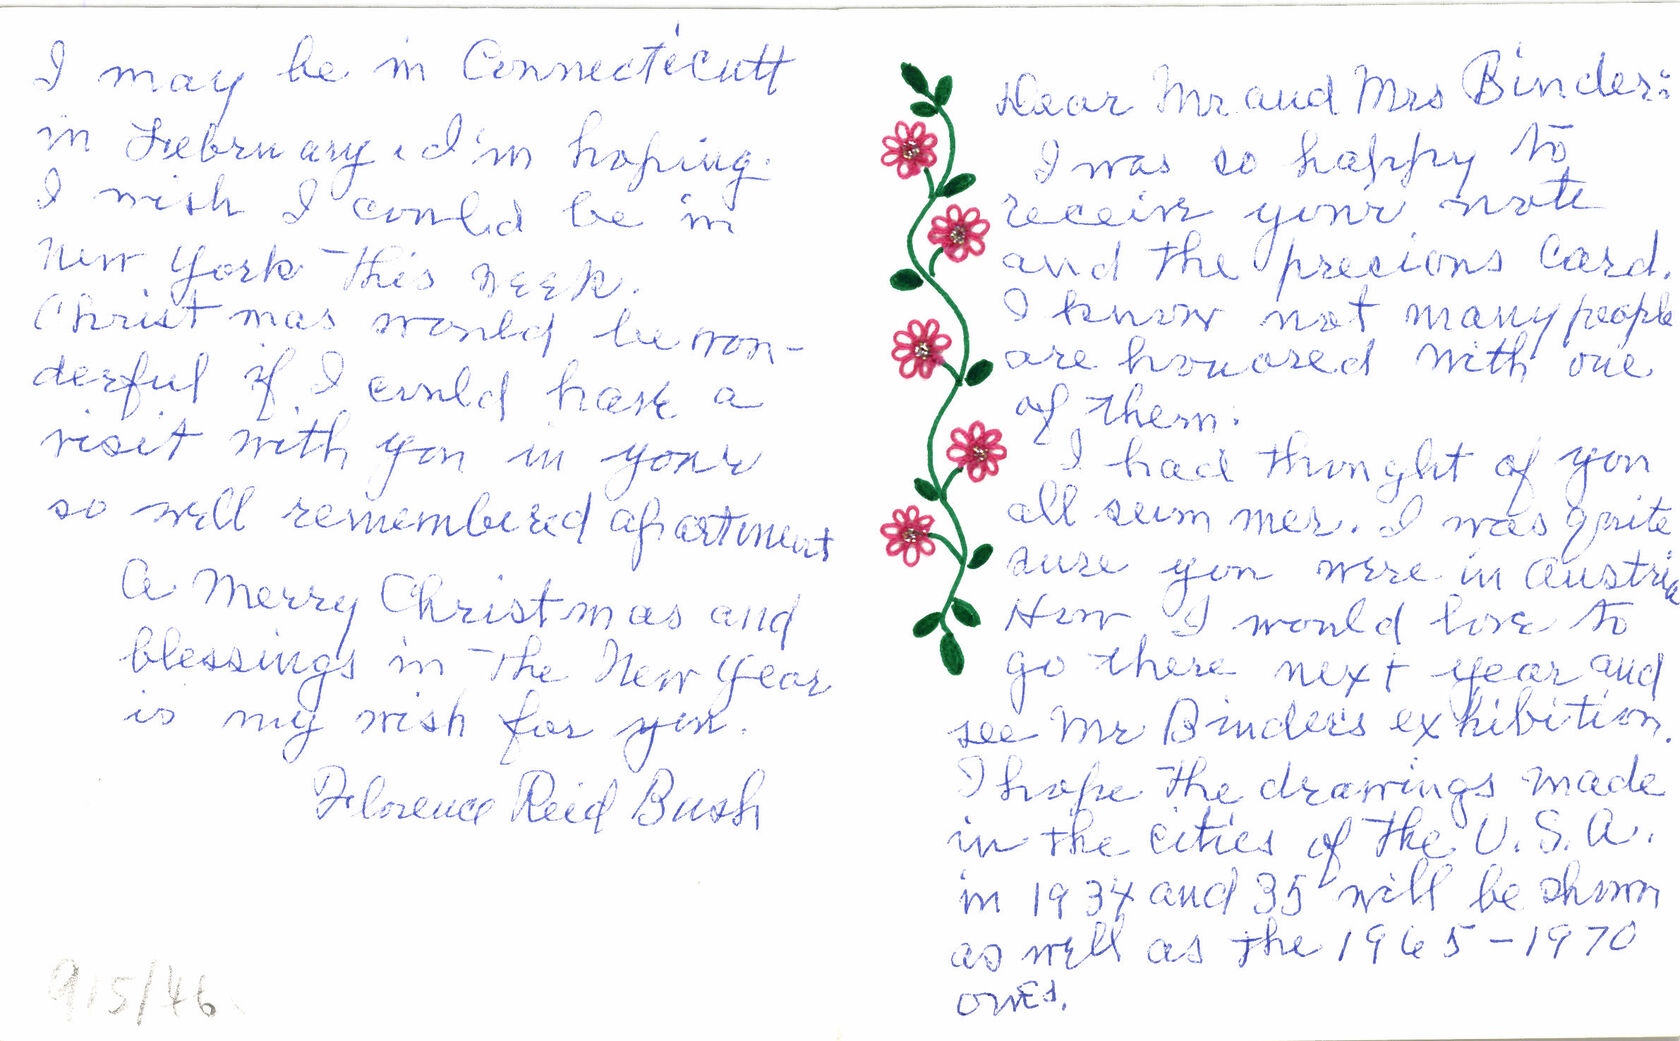 Dear Mr and Mrs Binder:
I was so happy to
receive your note
and the precious card.
I know not many people
are honored with one
of them.
I had thought of you
all summer. I was quite
sure you were in Austria
How I would love to
go there next year and
see Mr Binders exhibition.
I hope the drawings made
in the cities of the U.S.A.
in 1934 and 35 will be shown
as well as the 1965-1970
ones.
I may be in Connecticutt
in February. I'm hoping.
I wish I could be in
New York this week.
Christmas would be won-
derful if I could have a
visit with you in your
so well remembered apartment
A Merry Christmas and
blessings in the New Year
is my wish for you.
Florence Reid Bush
915/46